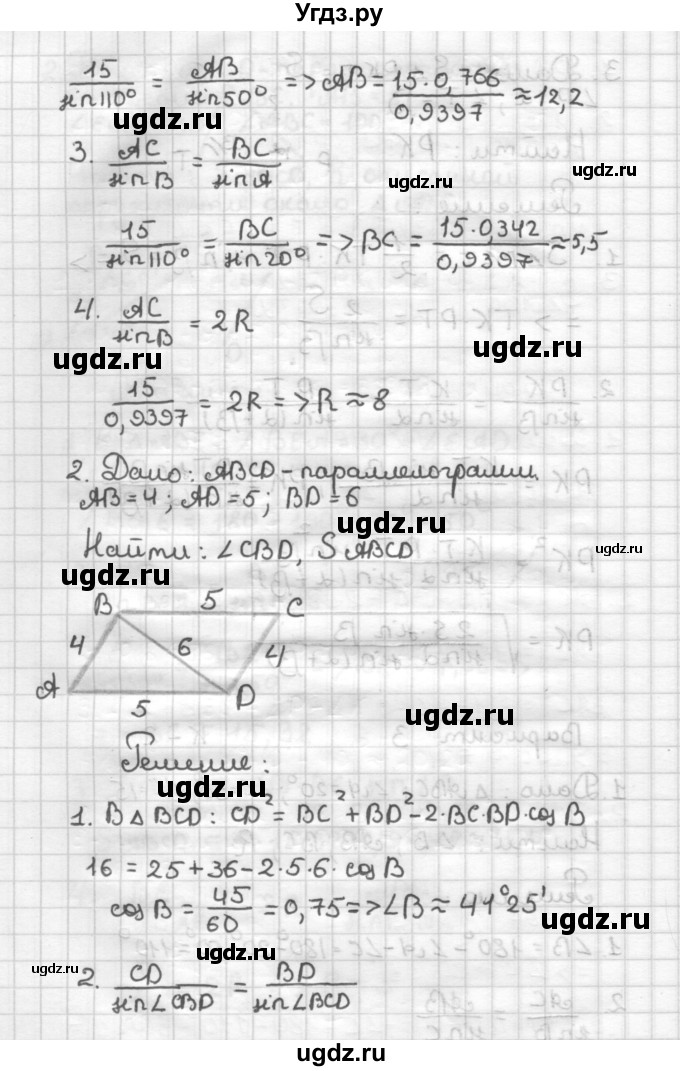 Угдз.ру
15/sin110° = AB/sin50° => AB = 15·0,766/0,9397 ≈ 12,2
ugdz.ru
3. AC/sinB = BC/sinA
ugdz.ru
15/sin110° = BC/sin20° => BC = 15·0,342/0,9397 ≈ 5,5
4. AC/sinB = 2R
ugdz.ru
ugdz.ru
15/0,9397 = 2R => R ≈ 8
2. Дано: ABCD - параллелограмм.
AB = 4; AD = 5; BD = 6
ugdz.ru
Найти: ∠CBD, SABCD
ugdz.ru
ugdz.ru
B 5 C
4 6 4
A D
5
ugdz.ru
Решение:
ugdz.ru
1. В △ BCD: CD² = BC² + BD² - 2·BC·BD·cosB
16 = 25 + 36 - 2·5·6·cosB
cosB = 45/60 = 0,75 => ∠B ≈ 41°25'
ugdz.ru
ugdz.ru
2. CD/sin∠CBD = BD/sin∠BCD
ugdz.ru
ugdz.ru